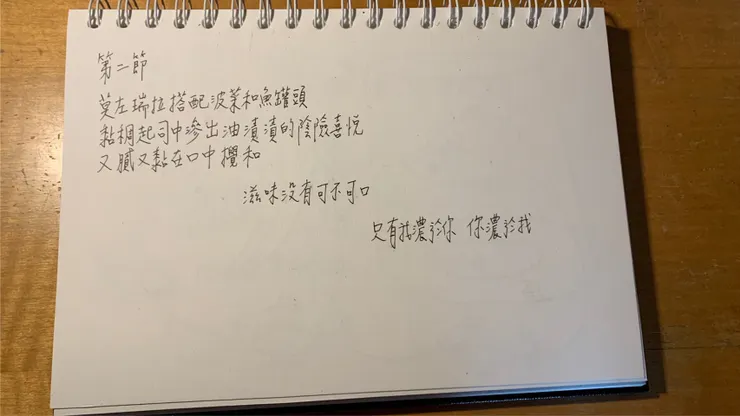 第二節
莫左瑞拉搭配波菜和魚罐頭
黏稠起司中滲出油漬漬的陰險喜悅
又膩又黏在口中攪和
滋味沒有可不可口
只有我濃於你 你濃於我